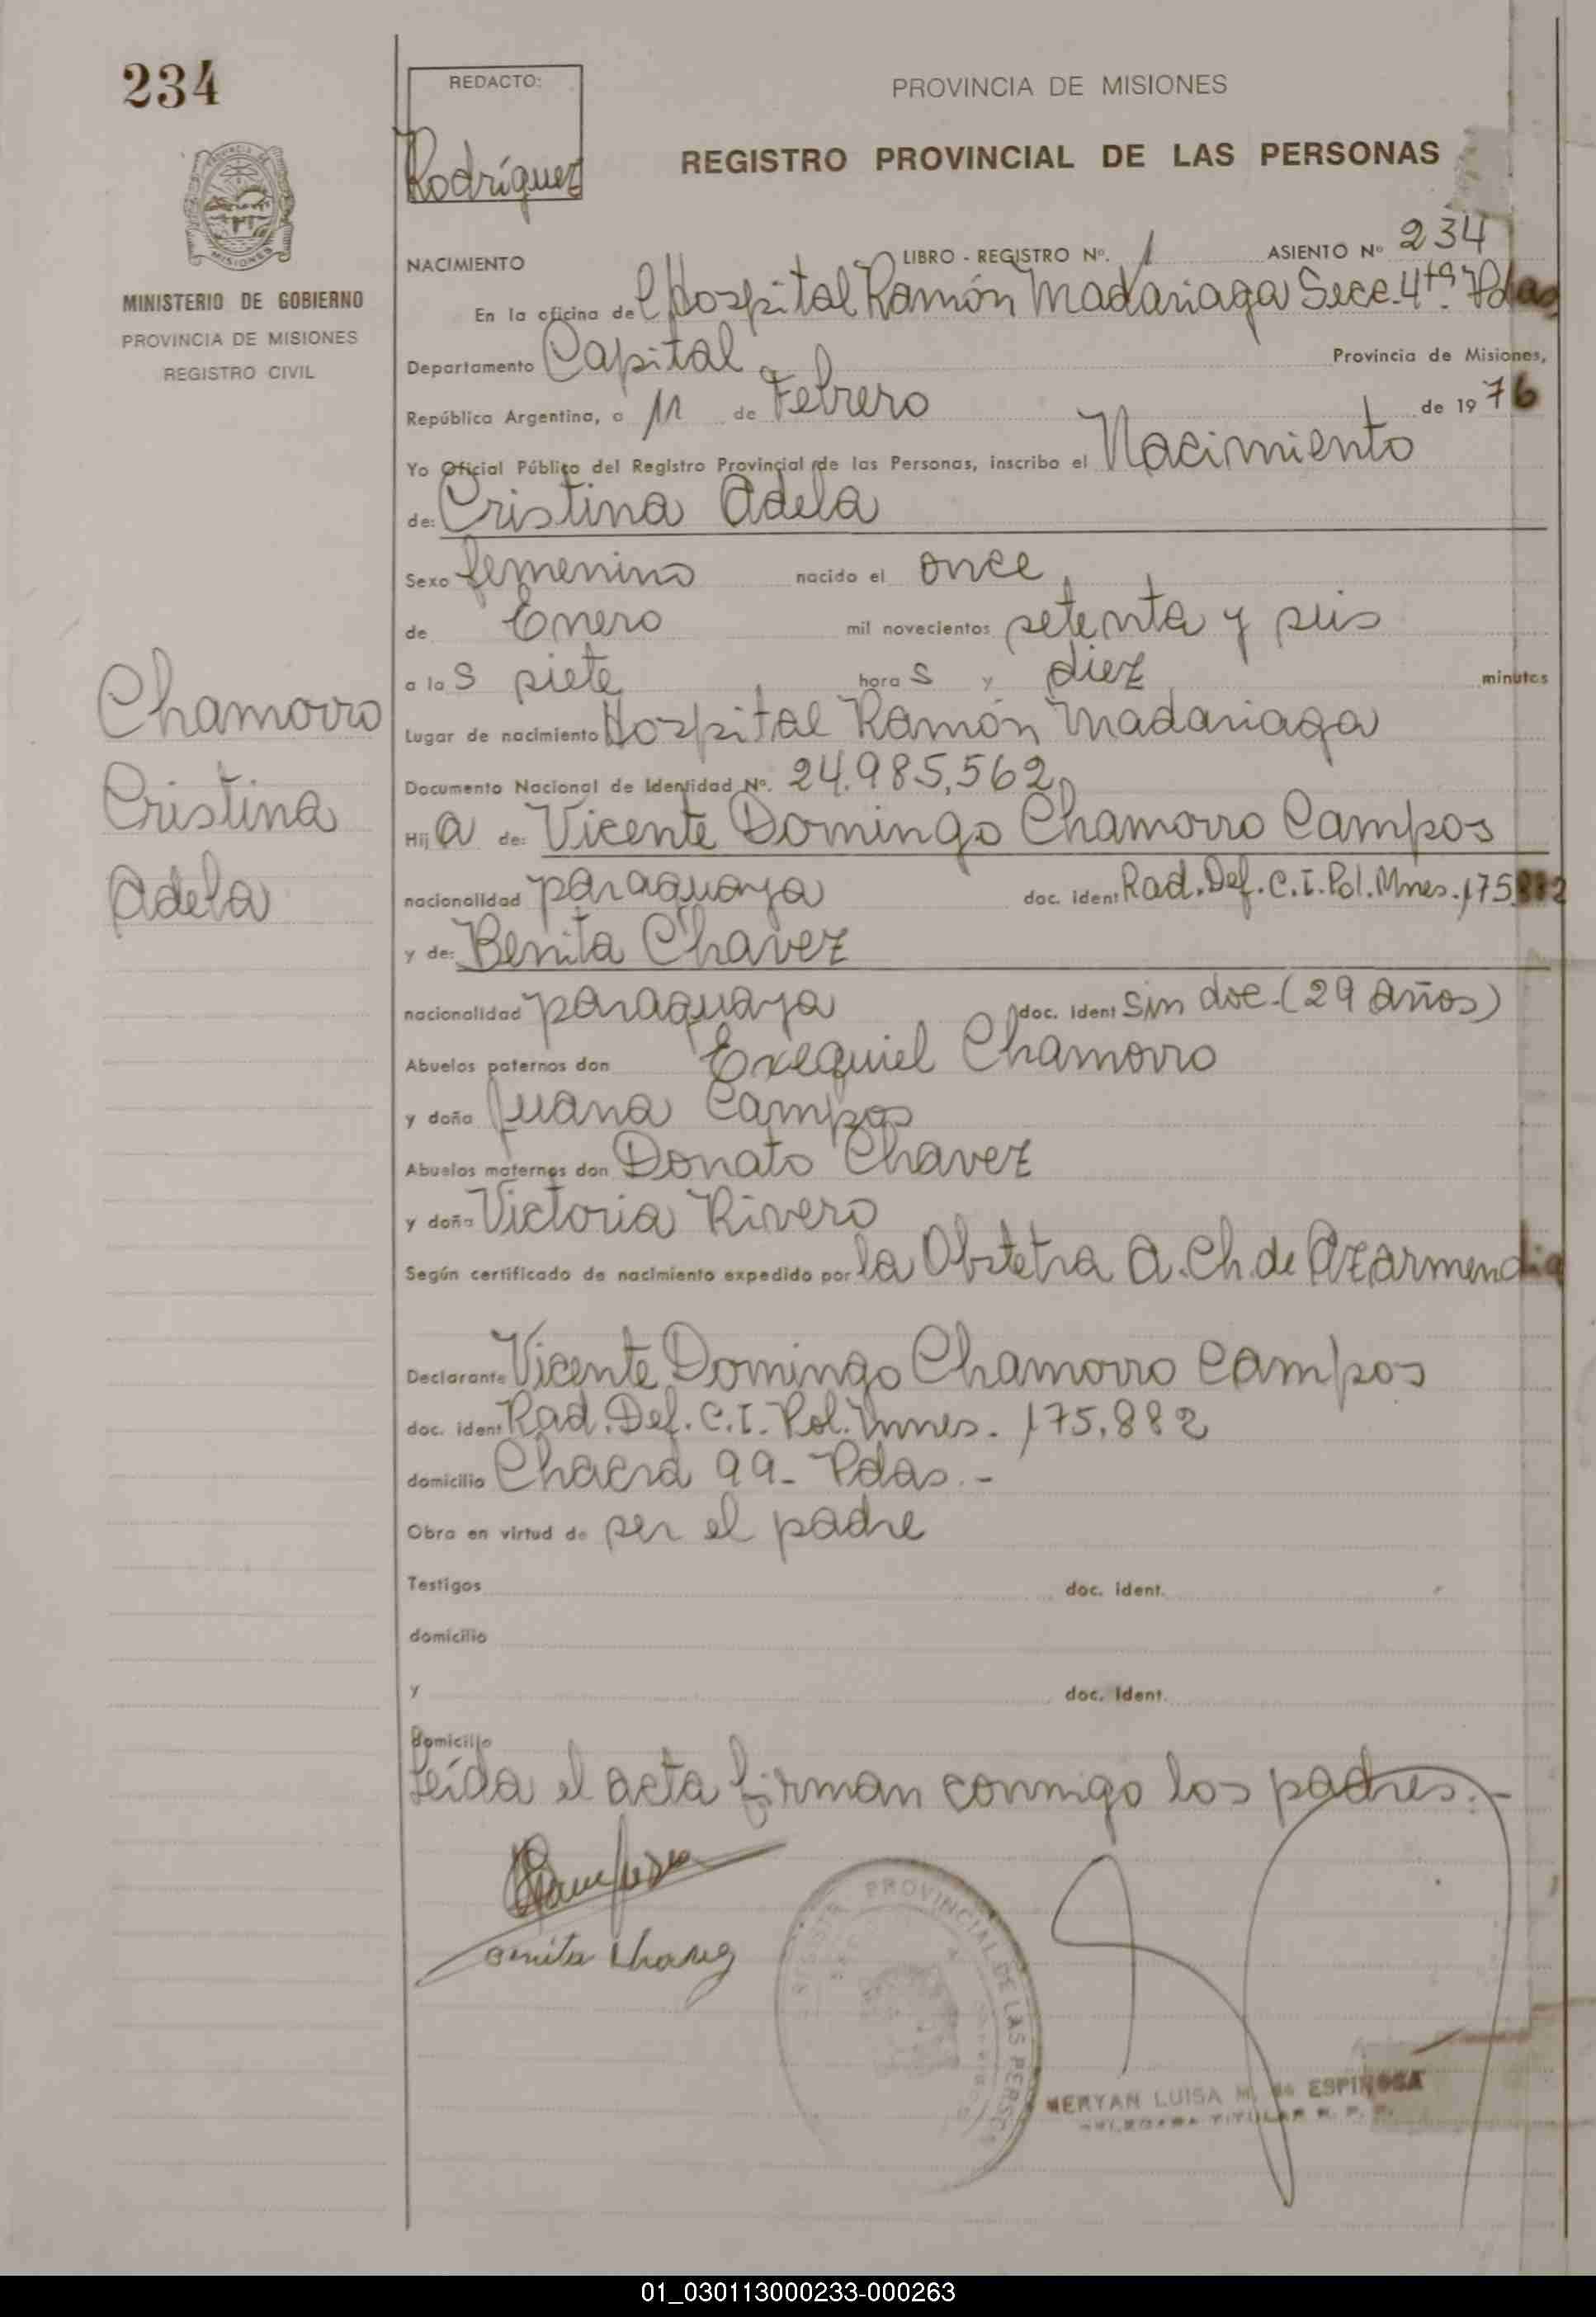 234
PROVINCIA DE
MISIONES
MINISTERIO DE GOBIERNO
PROVINCIA DE MISIONES
REGISTRO CIVIL
Chamorro
Cristina
Adela
REDACTO:
Rodríguez
PROVINCIA DE MISIONES
REGISTRO PROVINCIAL DE LAS PERSONAS
NACIMIENTO LIBRO - REGISTRO Nº. 1 ASIENTO Nº 234
En la oficina del Hospital Ramón Madariaga Secc. 4ta Pdas
Departamento Capital Provincia de Misiones,
República Argentina, a 11 de Febrero de 1976
Yo Oficial Público del Registro Provincial de las Personas, inscribo el Nacimiento
de: Cristina Adela
Sexo femenino nacido el once
de Enero mil novecientos setenta y seis
a las siete horas y diez minutos
Lugar de nacimiento Hospital Ramón Madariaga
Documento Nacional de Identidad Nº. 24.985,562
Hija de: Vicente Domingo Chamorro Campos
nacionalidad paraguaya doc. ident Rad. Def. C.I. Pol. Mnes. 175.882
y de: Benita Chavez
nacionalidad paraguaya doc. ident sin doc. (29 años)
Abuelos paternos don Exequiel Chamorro
y doña Juana Campos
Abuelos maternos don Donato Chavez
y doña Victoria Rivero
Según certificado de nacimiento expedido por la Obstetra A. Ch. de Azarmendia
Declarante Vicente Domingo Chamorro Campos
doc. ident Rad. Def. C.I. Pol. Mnes. 175,882
domicilio Chacra 99- Pdas.-
Obra en virtud de ser el padre
Testigos doc. ident.
domicilio
y doc. Ident.
domicilio
Leída el acta firman conmigo los padres.-
Benita Chavez
PROVINCIAL DE LAS PERSO
MERYAN LUISA M. de ESPINOSA
DELEGADA TITULAR R. P. P.
01_030113000233-000263